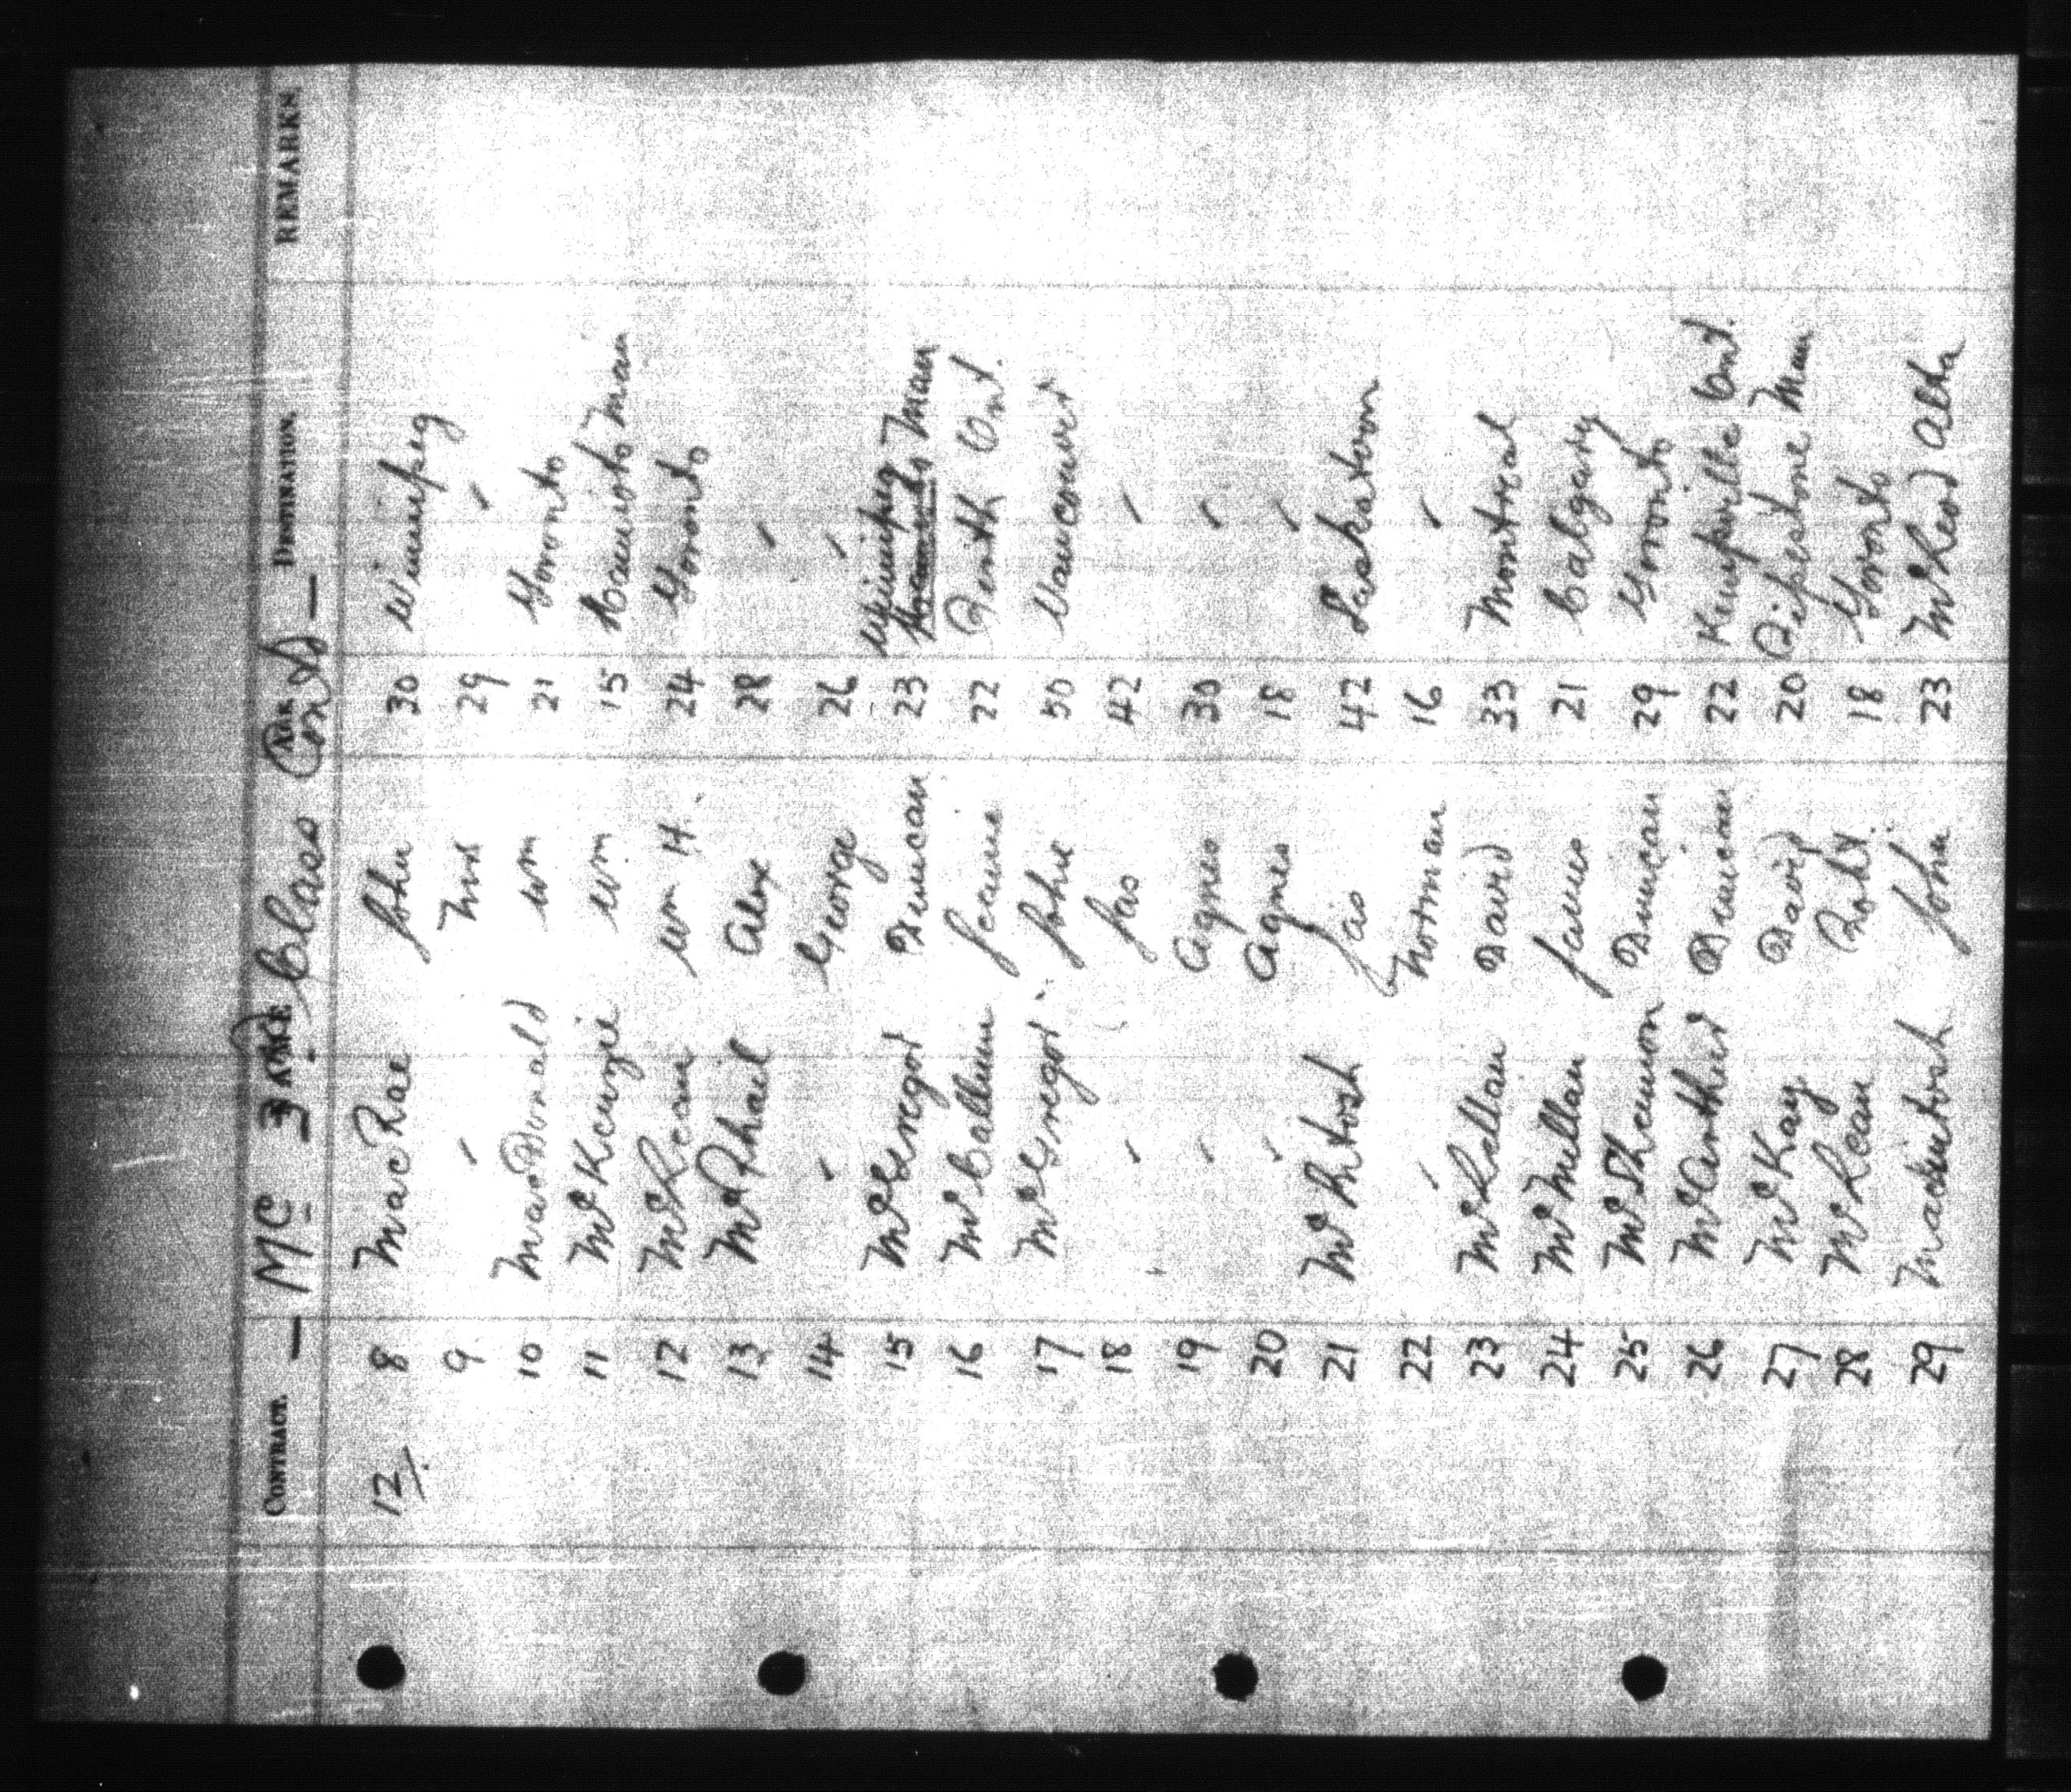 CONTRACT. — Mc 3rd Class Con'd — AGE DESTINATION. REMARKS.
12/. 8 MacRae John 30 Winnipeg
9 " Mrs 29 "
10 MacDonald Wm 21 Toronto
11 McKenzie Wm 15 Hamiota Man
12 McLean Wm H. 24 Toronto
13 McPhail Alex 28 "
14 " George 26 "
Winnipeg
15 McGregor Duncan 23 Man
16 McCallum 22 Ont.
17 McGregor John 50 Vancouver
18 " Jas 42 "
19 " Agnes 30 "
20 " Agnes 18 "
21 McIntosh Jas 42 Saskatoon
22 " Norman 16 "
23 McLellan David 33 Montreal
24 McMillan James 21 Calgary
25 Duncan 29 Toronto
26 McArthur Duncan 22 Kemptville Ont.
27 McKay David 20 Pipestone Man
28 McLean Robt. 18 Toronto
29 Mackintosh John 23 McLeod Alta